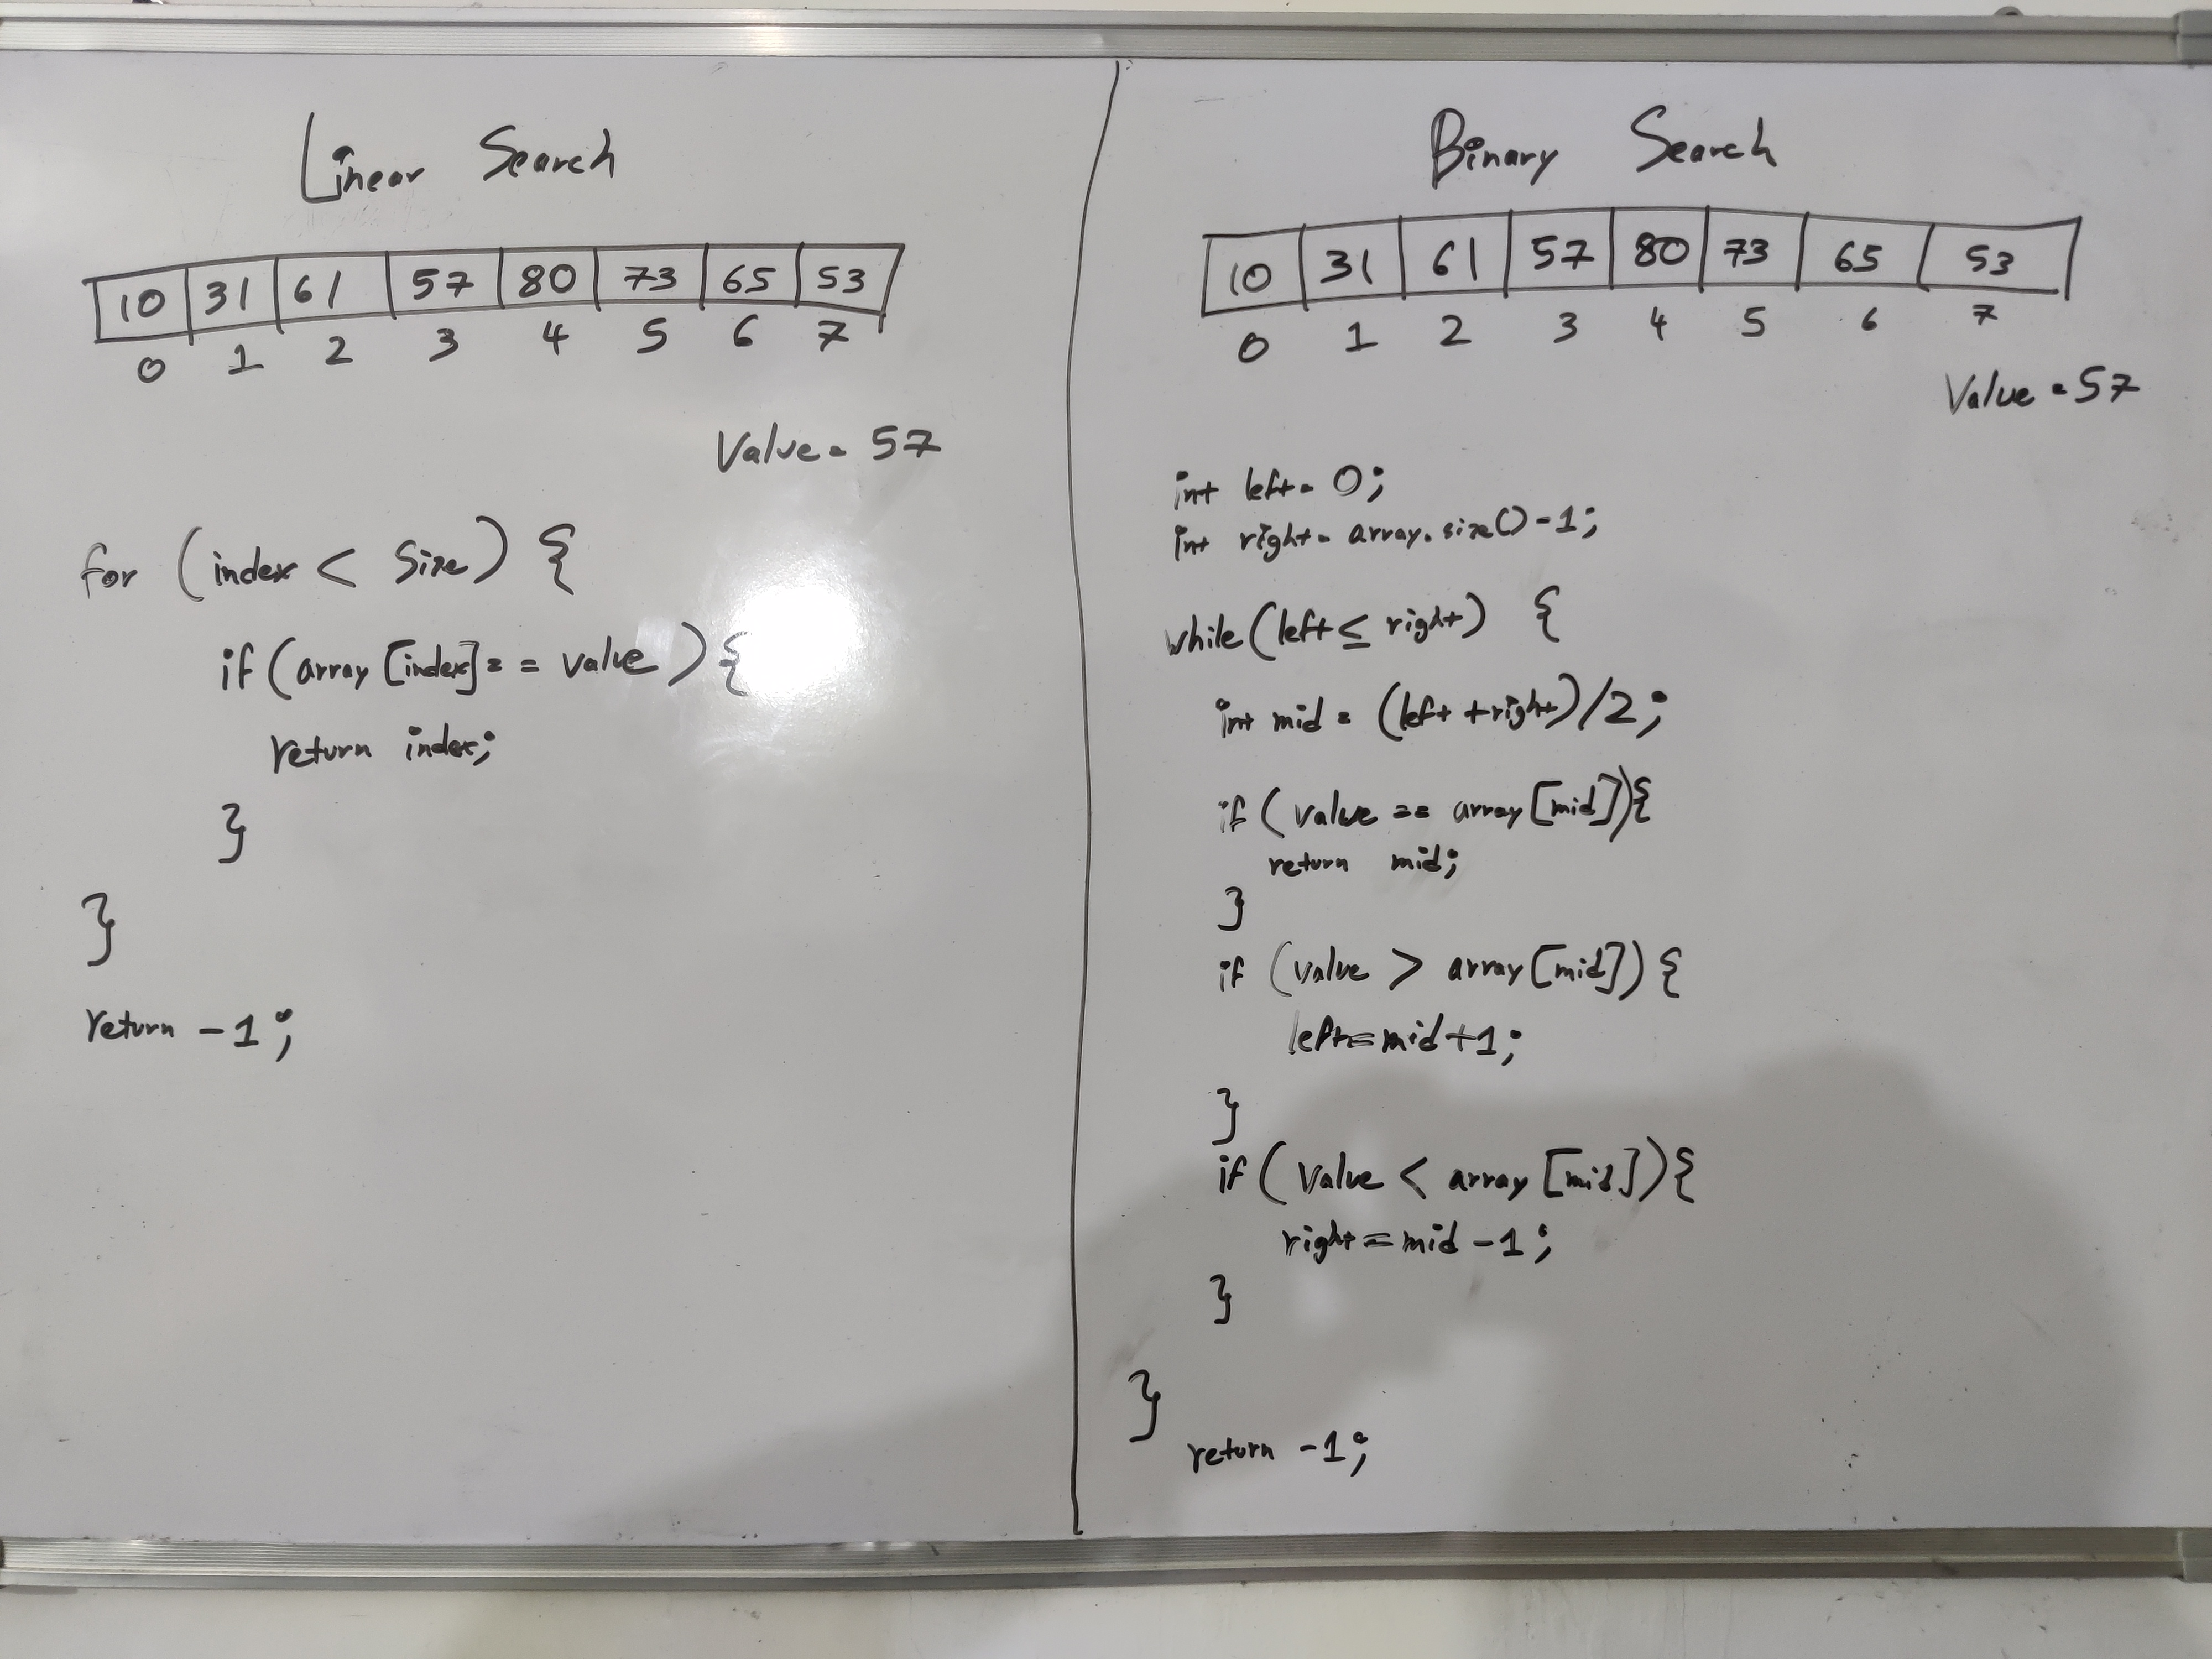 Linear Search
10 31 61 57 80 73 65 53
0 1 2 3 4 5 6 7
Value = 57
for (index < Size) {
if (array [index] == value) {
return index;
}
}
return -1;
Binary Search
10 31 61 57 80 73 65 53
0 1 2 3 4 5 6 7
Value = 57
int left = 0;
int right = array.size() - 1;
while (left ≤ right) {
int mid = (left + right)/2;
if (value == array [mid]) {
return mid;
}
if (value > array [mid]) {
left = mid + 1;
}
if (Value < array [mid]) {
right = mid - 1;
}
}
return -1;